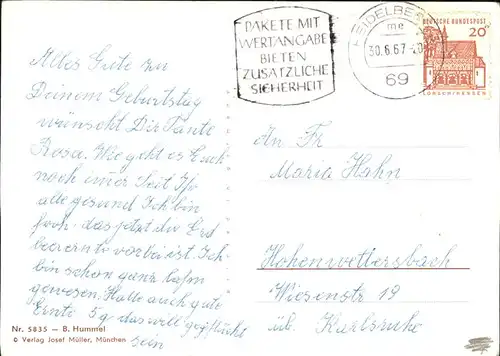 PAKETE MIT
WERTANGABE
BIETEN
ZUSÄTZLICHE
SICHERHEIT
HEIDELBERG
me
30.6.67
69
DEUTSCHE BUNDESPOST
20
LORSCH/HESSEN
Alles Gute zu
Deinem Geburtstag
wünscht Dir Tante
Rosa. Wie geht es Euch
noch imer Seit Ihr
alle gesund Ich bin
froh das jetzt die Erd
beerernte vorbei ist. Ich
bin schon ganz
gewesen. Hatte auch gute
Ernte 5 das will gepflückt
sein
An Fr
Maria Hahn
Hohenwettersbach
Wiesenstr 19
üb. Karlsruhe
Nr. 5835 — B. Hummel
© Verlag Josef Müller, München